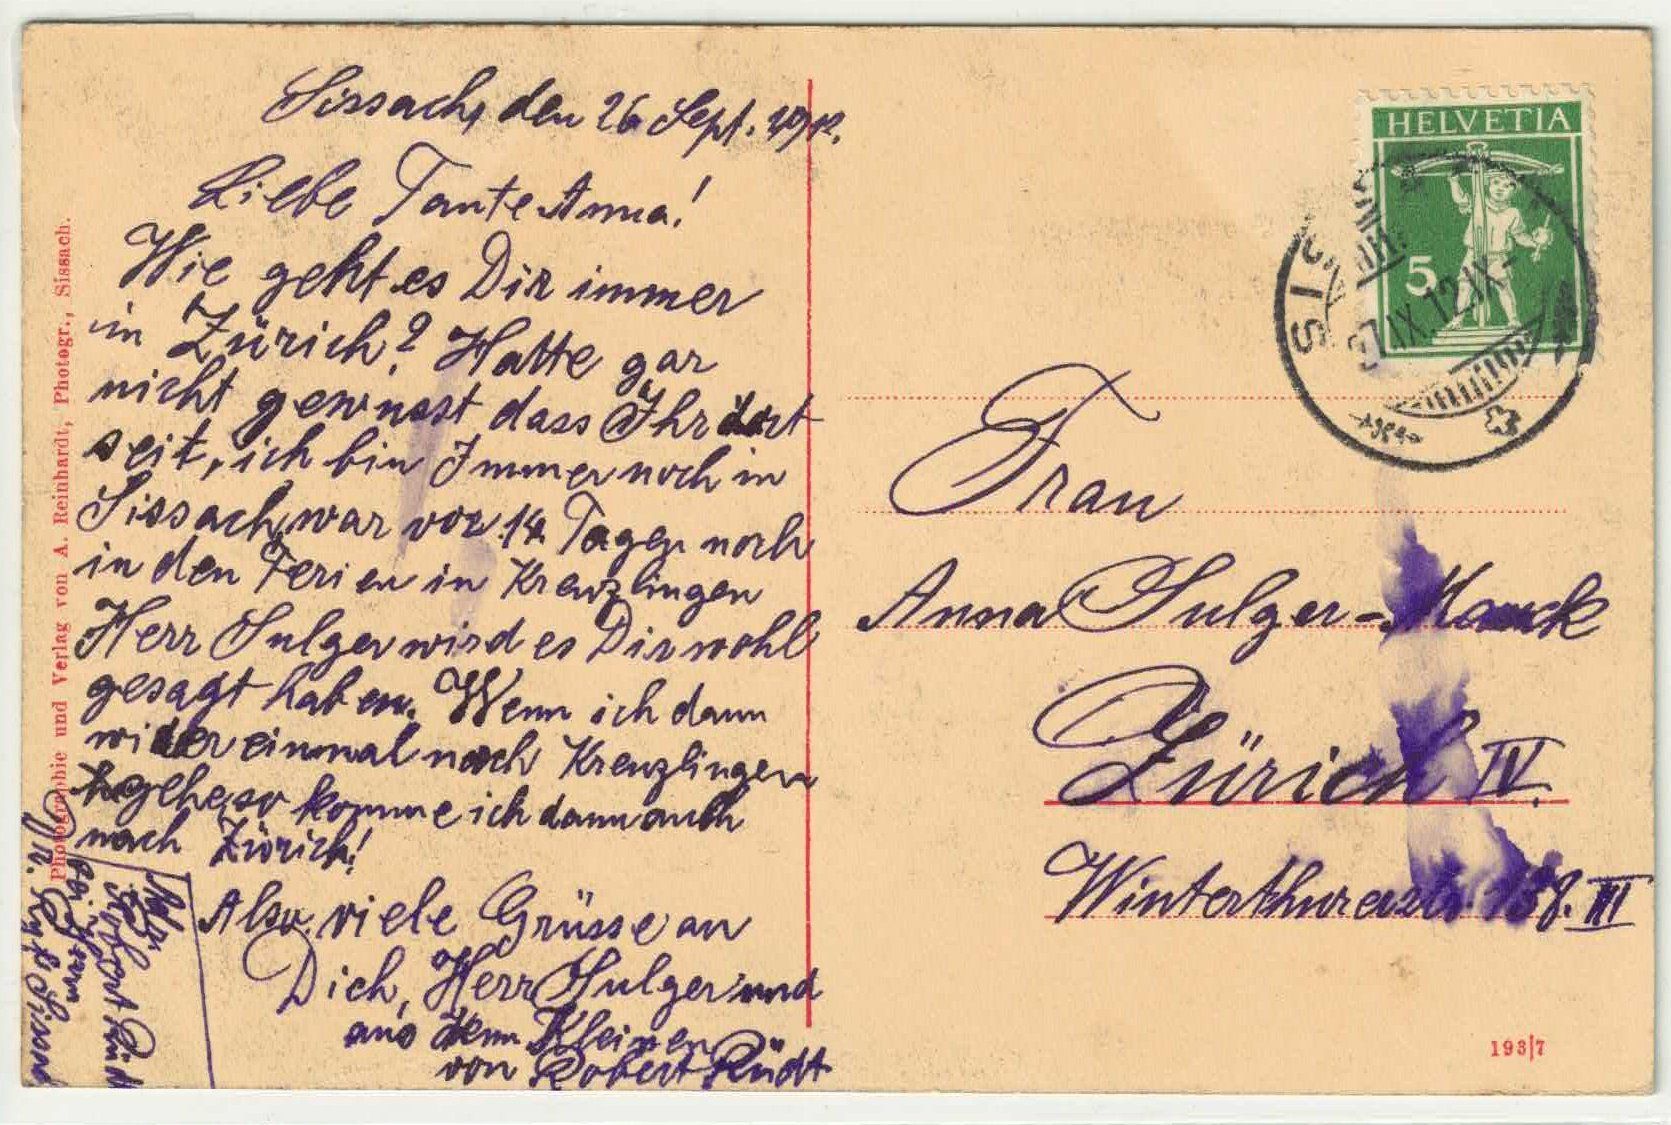 Sissach, den 26 Sept. 1912.
Liebe Tante Anna!
Wie geht es Dir immer
in Zürich? Hatte gar
nicht gewusst dass Ihr dort
seit, ich bin Immer noch in
Sissach, war vor 14 Tagen noch
in den Ferien in Kreuzlingen
Herr Sulger wird es Dir wohl
gesagt haben. Wenn ich dann
wider einmal nach Kreuzlingen
gehe, so komme ich dann auch
nach Zürich!
Also viele Grüsse an
Dich, Herr Sulger und
aus dem Kleinen
von Robert Rüdt
Adr.
Robert Rüdt
bei Herrn
Sissach
Photographie und Verlag von A. Reinhardt, Photogr., Sissach.
HELVETIA
5
SISSACH
27.IX.12.IX-
Frau
Anna Sulger-Mauck
Zürich IV.
Winterthurerstr. 158. III
193/7